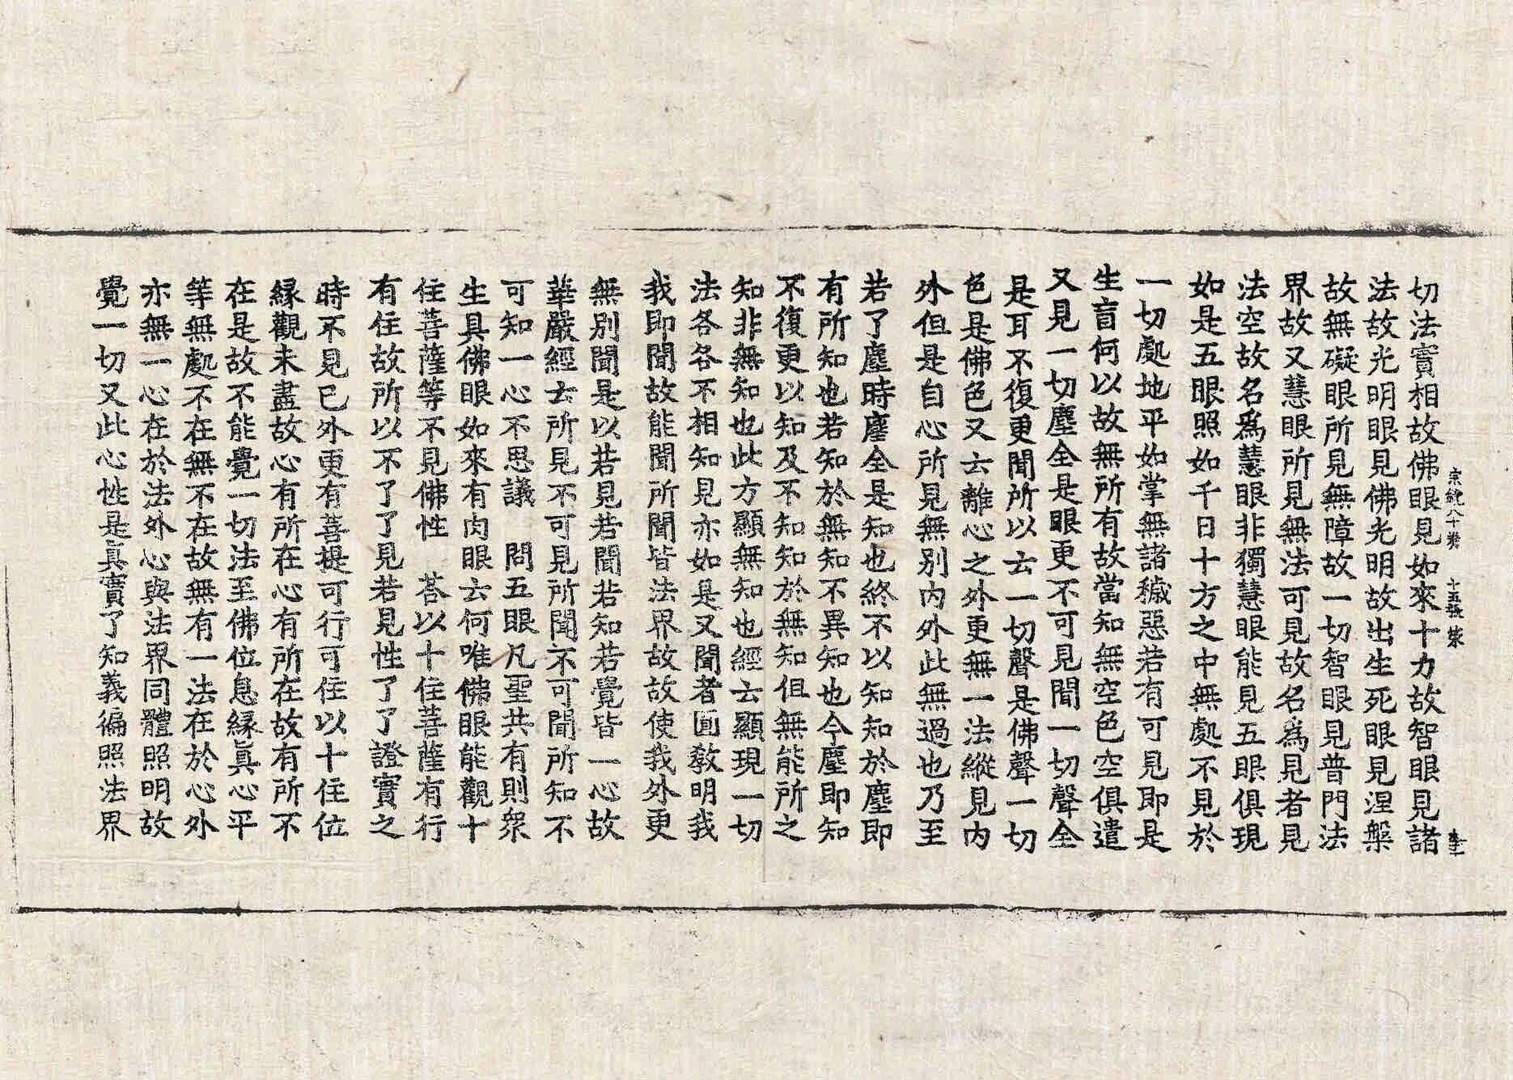 宗鏡八十卷 十五張 家
切法實相故佛眼見如來十力故智眼見諸
法故光明眼見佛光明故出生死眼見涅槃
故無礙眼所見無障故一切智眼見普門法
界故又慧眼所見無法可見故名爲見者見
法空故名爲慧眼非獨慧眼能見五眼俱現
如是五眼照如千日十方之中無處不見於
一切處地平如掌無諸穢惡若有可見即是
生盲何以故無所有故當知無空色空俱遣
又見一切塵全是眼更不可見聞一切聲全
是耳不復更聞所以云一切聲是佛聲一切
色是佛色又云離心之外更無一法縱見內
外但是自心所見無别內外此無過也乃至
若了塵時塵全是知也終不以知知於塵即
有所知也若知於無知不異知也今塵即知
不復更以知及不知知於無知但無能所之
知非無知也此方顯無知也經云顯現一切
法各各不相知見亦如是又聞者圓教明我
我即聞故能聞所聞皆法界故故使我外更
無别聞是以若見若聞若知若覺皆一心故
華嚴經云所見不可見所聞不可聞所知不
可知一心不思議 問五眼凡聖共有則衆
生具佛眼如來有肉眼云何唯佛眼能觀十
住菩薩等不見佛性 荅以十住菩薩有行
有住故所以不了了見若見性了了證實之
時不見已外更有菩提可行可住以十住位
緣觀未盡故心有所在心有所在故有所不
在是故不能覺一切法至佛位息緣眞心平
等無處不在無不在故無有一法在於心外
亦無一心在於法外心與法界同體照明故
覺一切又此心性是眞實了知義徧照法界